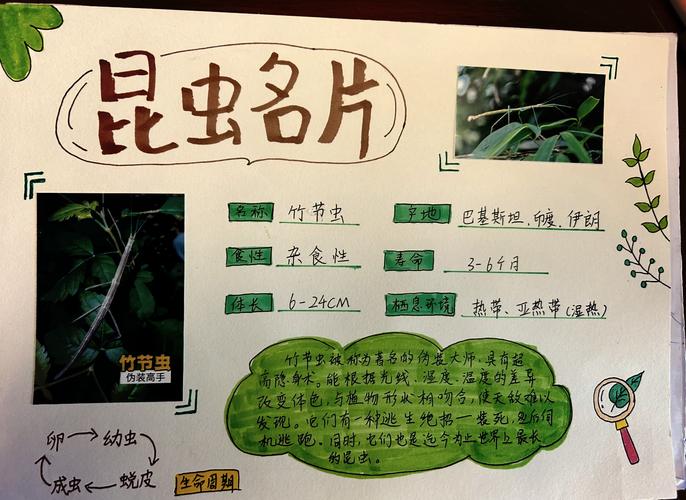 昆虫名片
名称 竹节虫
产地 巴基斯坦、印度、伊朗
食性 杂食性
寿命 3-6个月
体长 6-24CM
栖息环境 热带、亚热带(湿热)
竹节虫
伪装高手
竹节虫被称为著名的伪装大师,具有超
高隐身术。能根据光线、湿度、温度的差异
改变体色,与植物形状相吻合,使天敌难以
发现。它们有一种逃生绝招—装死,然后伺
机逃跑。同时,它们也是迄今为止世界上最长
的昆虫。
卵→幼虫
成虫←蜕皮
生命周期